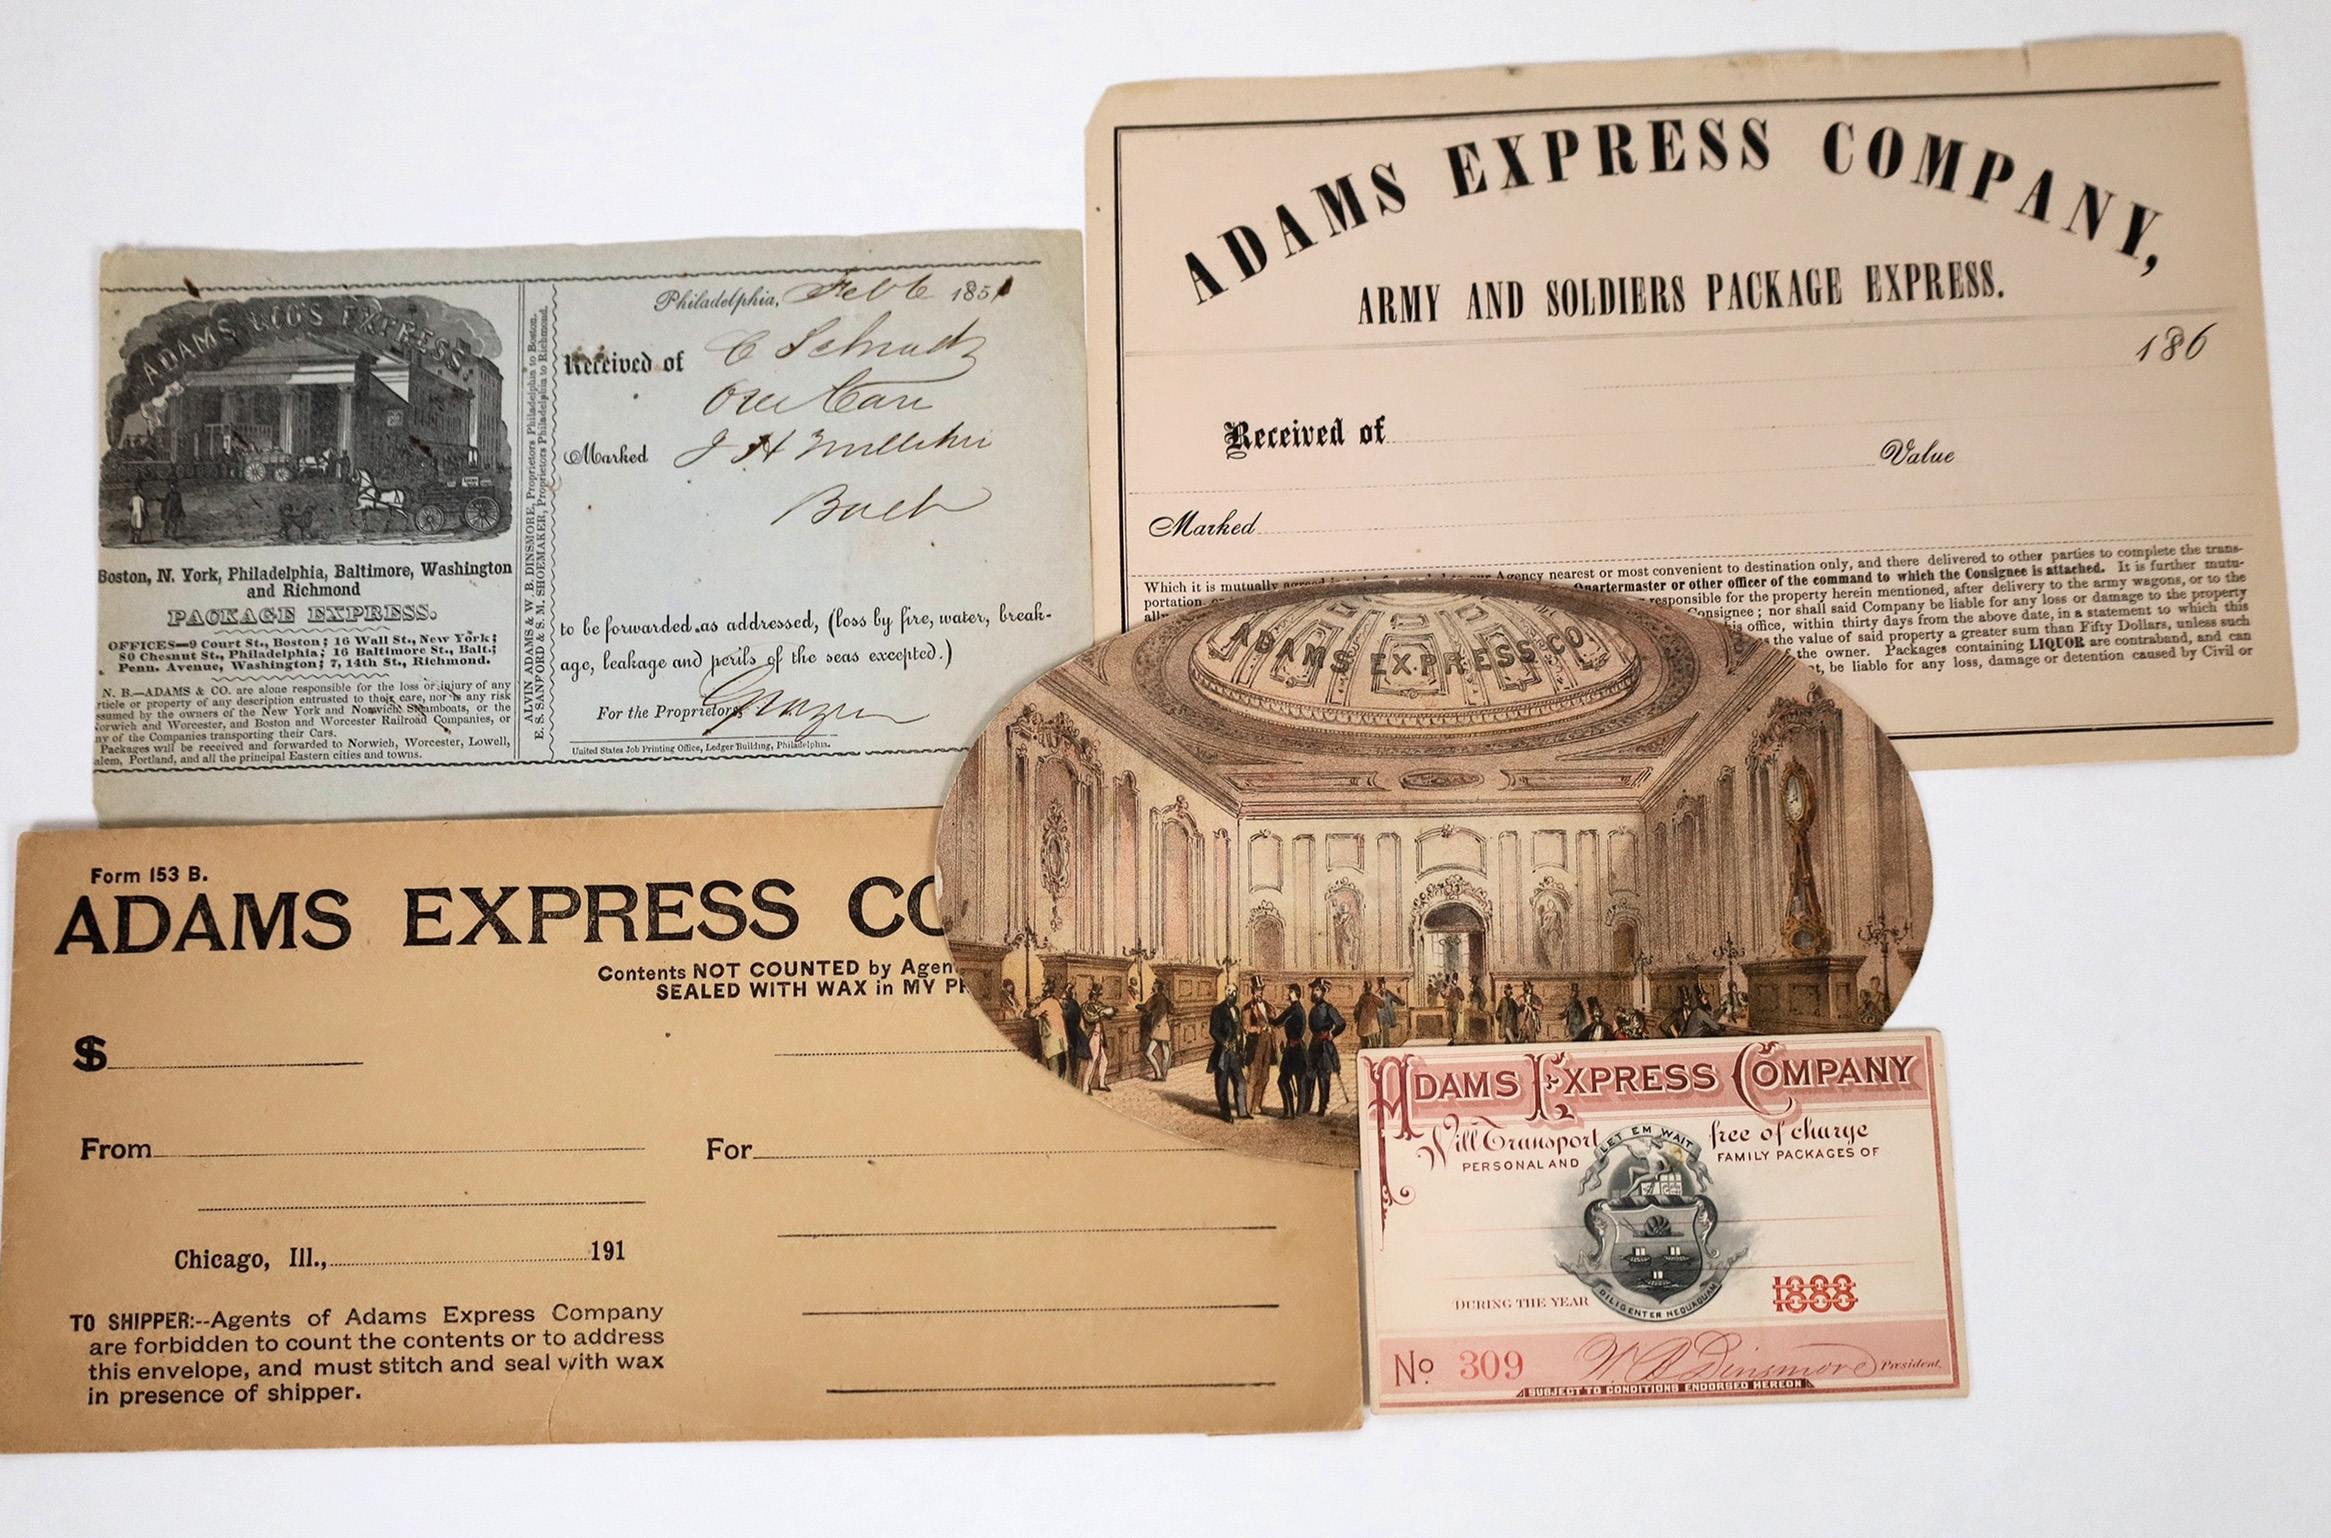 ADAMS & CO'S EXPRESS
Boston, N. York, Philadelphia, Baltimore, Washington
and Richmond
PACKAGE EXPRESS.
OFFICES—9 Court St., Boston; 16 Wall St., New York;
80 Chesnut St., Philadelphia; 16 Baltimore St., Balt.;
Penn. Avenue, Washington; 7, 14th St., Richmond.
N. B.—ADAMS & CO. are alone responsible for the loss or injury of any
rticle or property of any description entrusted to their care, nor is any risk
ssumed by the owners of the New York and Norwich Steamboats, or the
orwich and Worcester, and Boston and Worcester Railroad Companies, or
ny of the Companies transporting their Cars.
Packages will be received and forwarded to Norwich, Worcester, Lowell,
alem, Portland, and all the principal Eastern cities and towns.
ALVIN ADAMS & W. B. DINSMORE, Proprietors Philadelphia to Boston.
E. S. SANFORD & S. M. SHOEMAKER, Proprietors Philadelphia to Richmond.
Philadelphia, Feb 6 1851
Received of C
One
Marked J H
to be forwarded as addressed, (loss by fire, water, break-
age, leakage and perils of the seas excepted.)
For the Proprietors,
United States Job Printing Office, Ledger Building, Philadelphia.
ADAMS EXPRESS COMPANY,
ARMY AND SOLDIERS PACKAGE EXPRESS.
186
Received of
Value
Marked
Which it is mutually agreed is to be forwarded to our Agency nearest or most convenient to destination only, and there delivered to other parties to complete the trans-
portation Quartermaster or other officer of the command to which the Consignee is attached. It is further mutu-
ally responsible for the property herein mentioned, after delivery to the army wagons, or to the
Consignee; nor shall said Company be liable for any loss or damage to the property
is office, within thirty days from the above date, in a statement to which this
s the value of said property a greater sum than Fifty Dollars, unless such
the owner. Packages containing LIQUOR are contraband, and can
be liable for any loss, damage or detention caused by Civil or
ADAMS EXPRESS CO.
Form 153 B.
ADAMS EXPRESS CO
Contents NOT COUNTED by Agen
SEALED WITH WAX in MY PR
$
From
For
Chicago, Ill., 191
TO SHIPPER:--Agents of Adams Express Company
are forbidden to count the contents or to address
this envelope, and must stitch and seal with wax
in presence of shipper.
ADAMS EXPRESS COMPANY
Will Transport free of charge
PERSONAL AND FAMILY PACKAGES OF
LET EM WAIT
DILIGENTER NEQUAQUAM
DURING THE YEAR 1888
No 309 W. B. Dinsmore President.
SUBJECT TO CONDITIONS ENDORSED HEREON